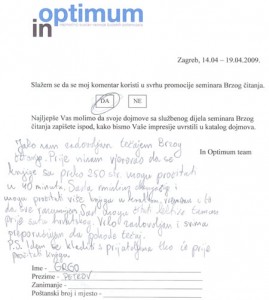 optimum
in
Zagreb, 14.04 – 19.04.2009.
Slažem se da se moj komentar koristi u svrhu promocije seminara Brzog čitanja.
DA NE
Najljepše Vas molimo da svoje dojmove sa službenog dijela seminara Brzog
čitanja zapišete ispod, kako bismo Vaše impresije uvrstili u katalog dojmova.
In Optimum team
Jako sam zadovoljan tečajem Brzog
čitanja. Prije nisam vjerovao da se
knjige sa preko 250 str. mogu pročitati
u 40 minuta. Sada mislim drugačije i
mogu pročitati više knjiga u kratkom vremenu s tim
da sve razumijem. Sad mogu čitati
prije zadovoljan i svima
preporučujem da pohode tečaj.
P.S. Idem se kladiti s prijateljima tko će prije
pročitati knjigu
Ime - GRGO
Prezime - PETROV
Zanimanje -
Poštanski broj i mjesto -